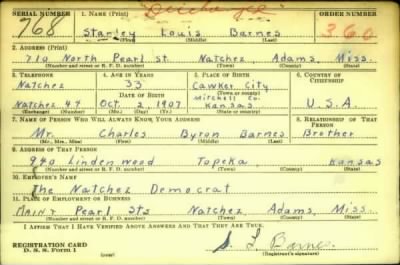 "Discharged"
SERIAL NUMBER 1. NAME (Print) ORDER NUMBER
768 Stanley Louis Barnes 360
(First) (Middle) (Last)
2. ADDRESS (Print)
710 North Pearl St. Natchez, Adams, Miss.
(Number and street or R. F. D. number) (Town) (County) (State)
3. TELEPHONE 4. AGE IN YEARS 5. PLACE OF BIRTH 6. COUNTRY OF CITIZENSHIP
Natchez 33 Cawker City
(Town or county)
DATE OF BIRTH Mitchell Co.
Natchez 44 Oct. 2, 1907 Kansas U.S.A.
(Exchange) (Number) (Mo.) (Day) (Yr.) (State or country)
7. NAME OF PERSON WHO WILL ALWAYS KNOW YOUR ADDRESS 8. RELATIONSHIP OF THAT PERSON
Mr. Charles Byron Barnes Brother
(Mr., Mrs., Miss) (First) (Middle) (Last)
9. ADDRESS OF THAT PERSON
940 Lindenwood Topeka Kansas
(Number and street or R. F. D. number) (Town) (County) (State)
10. EMPLOYER'S NAME
The Natchez Democrat
11. PLACE OF EMPLOYMENT OR BUSINESS
Pearl Sts Natchez, Adams, Miss.
(Number and street or R. F. D. number) (Town) (County) (State)
I AFFIRM THAT I HAVE VERIFIED ABOVE ANSWERS AND THAT THEY ARE TRUE.
REGISTRATION CARD
D. S. S. Form 1 (over) (Registrant's signature)
S. L. Barnes